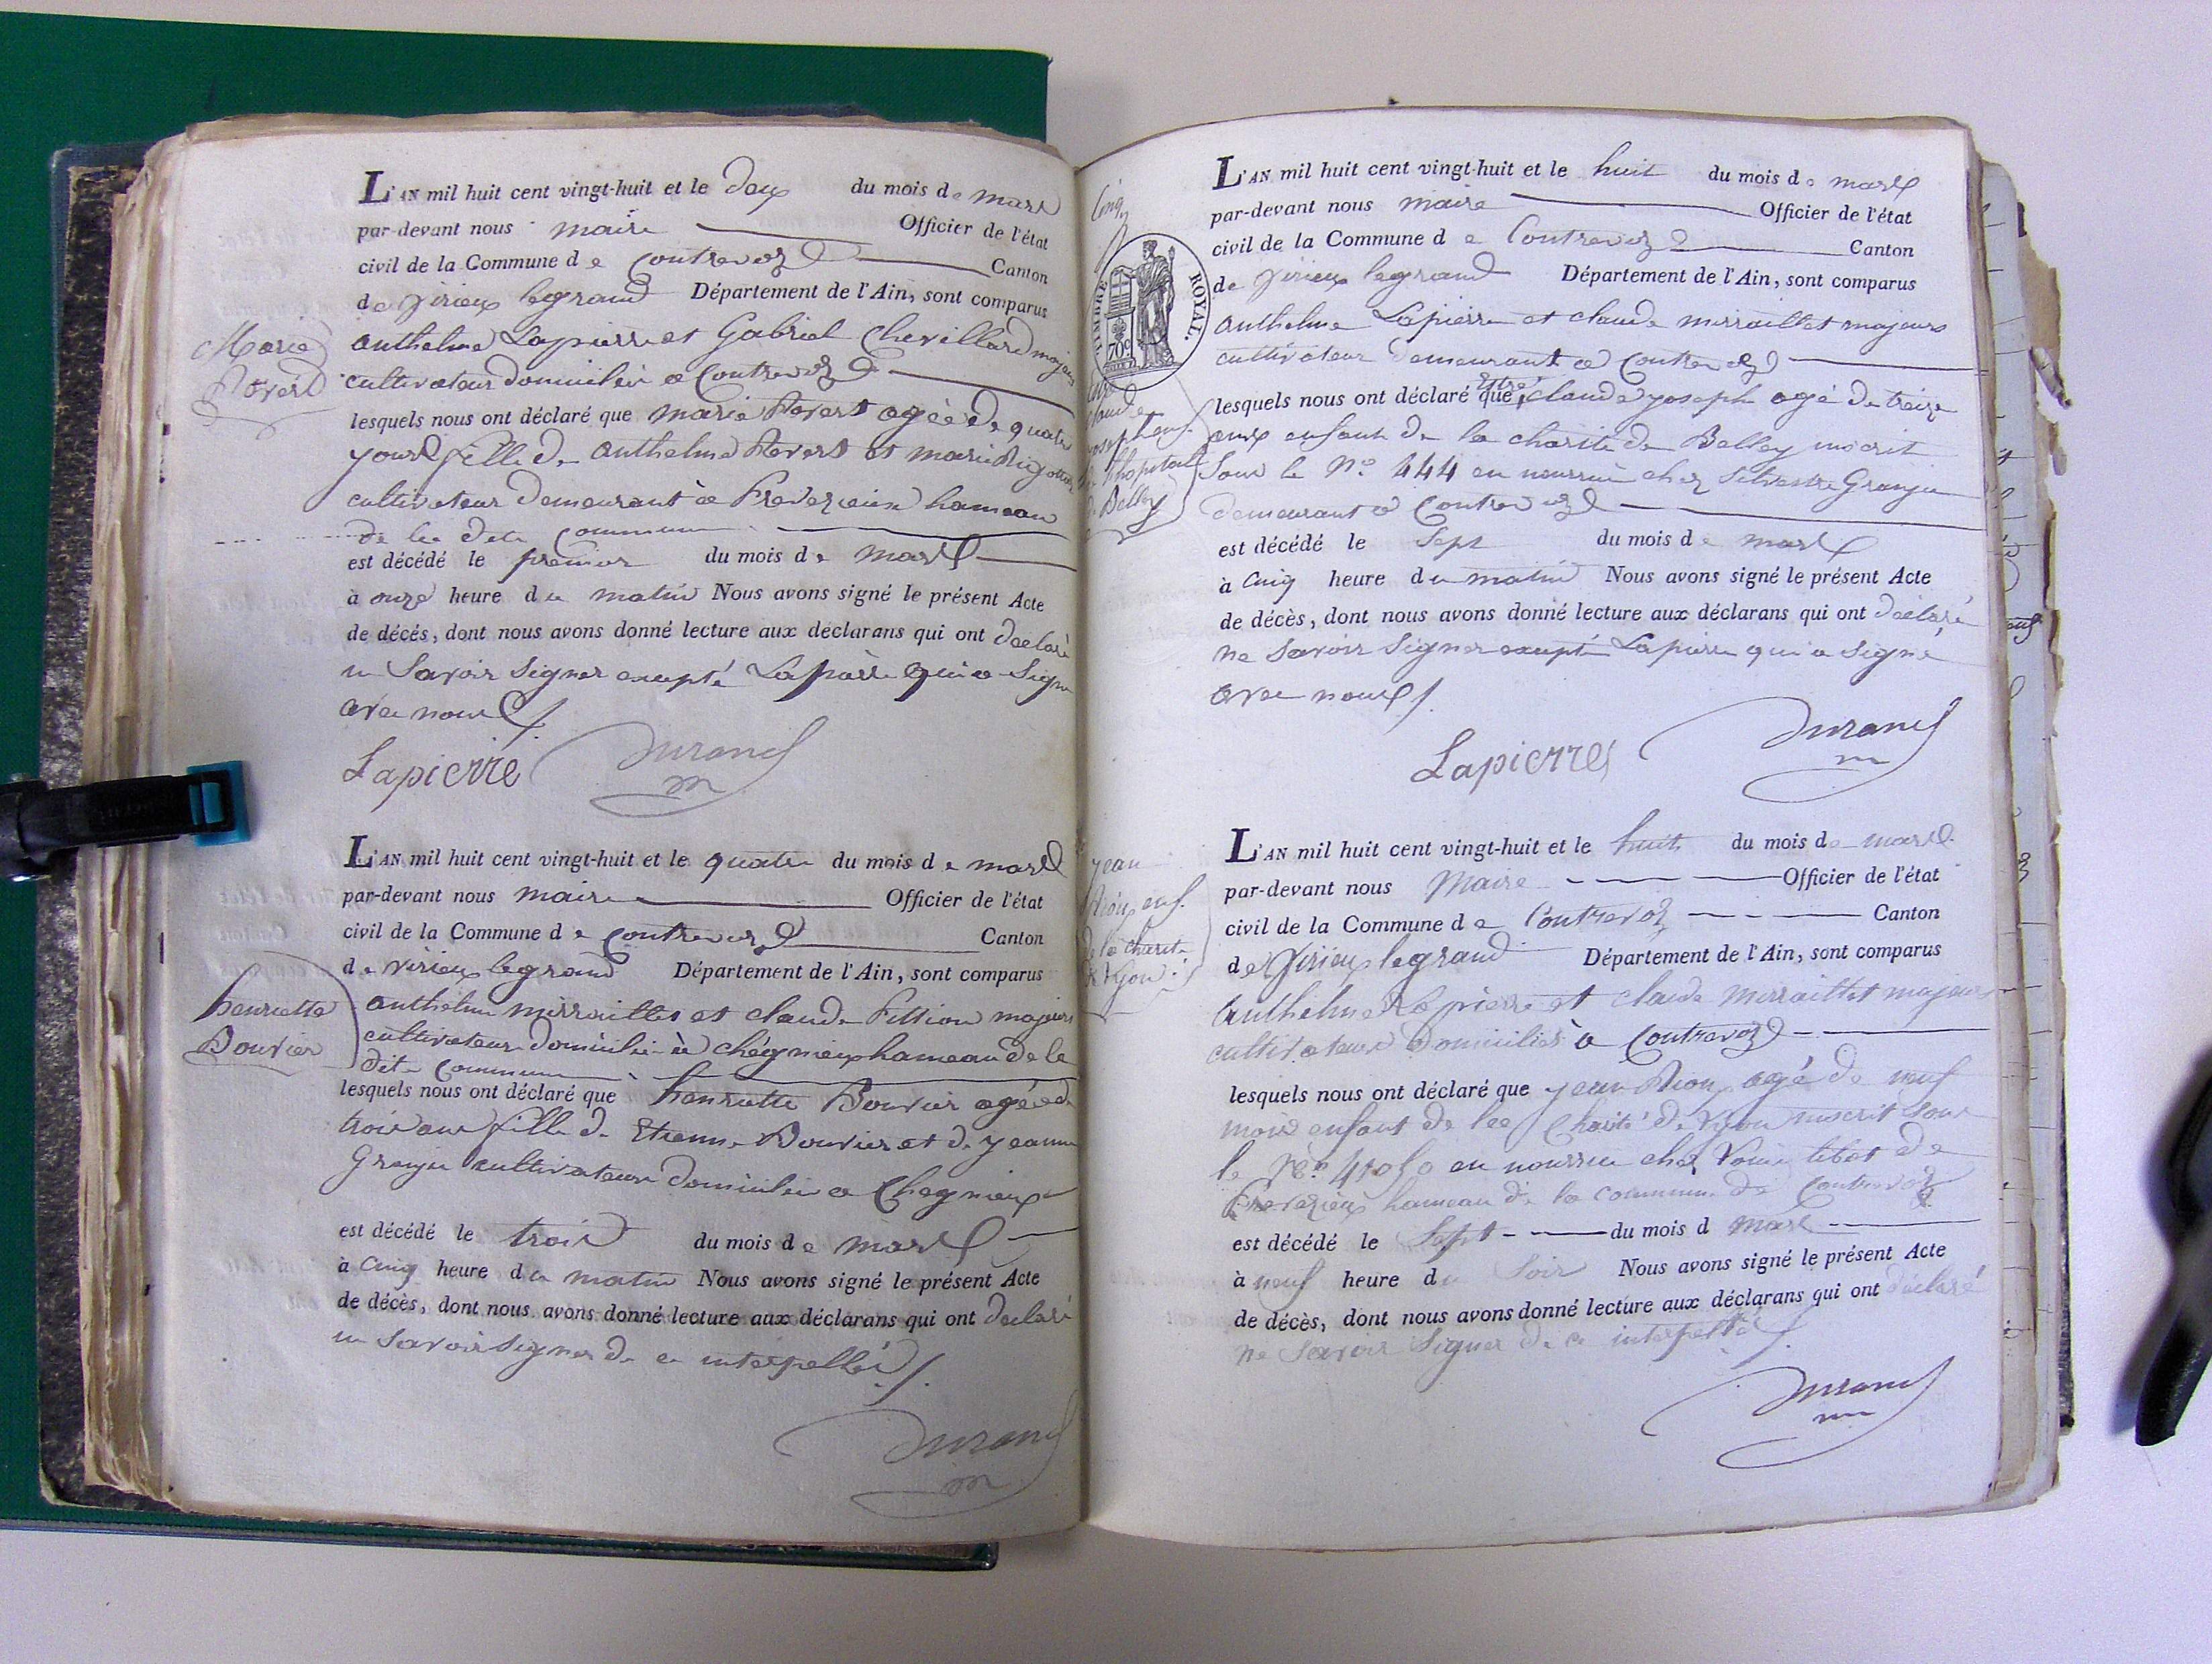 L'AN mil huit cent vingt-huit et le deux du mois de mars
par-devant nous maire Officier de l'état
civil de la Commune de Contrevoz Canton
de virieux legrand Département de l'Ain, sont comparus
anthelme Lapierre et Gabriel Chevillard majeurs
cultivateur domicilié a Contrevoz
lesquels nous ont déclaré que marie Revert agée de quatre
jours fille de anthelme Revert et marie
cultivateur demeurant à Preveyzieux hameau
de la dite commune
est décédé le premier du mois de mars
à onze heure du matin Nous avons signé le présent Acte
de décés, dont nous avons donné lecture aux déclarans qui ont déclaré
ne Savoir signer excepté Lapierre qui a Signé
avec nous
Lapierre Durand
m
Marie
Revert
L'AN mil huit cent vingt-huit et le quatre du mois de mars
par-devant nous maire Officier de l'état
civil de la Commune de Contrevoz Canton
de virieux legrand Département de l'Ain, sont comparus
anthelme mirraillet et claude Fillion majeurs
cultivateur domicilié à chégnieux hameau de la
dite Commune
lesquels nous ont déclaré que henriette Bouvier agée de
trois ans fille de Etienne Bouvier et de jeanne
Granju cultivateur domicilié a Chegnieux
est décédé le trois du mois de mars
à cinq heure du matin Nous avons signé le présent Acte
de décès, dont nous avons donné lecture aux déclarans qui ont déclaré
ne savoir signer de ce interpellés
Durand
m
henriette
Bouvier
L'AN mil huit cent vingt-huit et le huit du mois de mars
par-devant nous maire Officier de l'état
civil de la Commune de Contrevoz Canton
de virieux legrand Département de l'Ain, sont comparus
anthelme Lapierre et claude mirraillet majeurs
cultivateur demeurant a Contrevoz
lesquels nous ont déclaré que claude joseph agé de treize
ans enfant de la charité de Belley inscrit
Sous le N.o 444 en nourrice chez Silvestre Granju
demeurant a Contrevoz
est décédé le Sept du mois de mars
à cinq heure du matin Nous avons signé le présent Acte
de décès, dont nous avons donné lecture aux déclarans qui ont déclaré
ne Savoir Signer excepté Lapierre qui a Signé
avec nous
Lapierre Durand
m
Cinq
TIMBRE ROYAL.
70c
claude
joseph enf.
de l'hopital
de Belley
L'AN mil huit cent vingt-huit et le huit du mois de mars
par-devant nous Maire Officier de l'état
civil de la Commune de Contrevoz Canton
de Virieux legrand Département de l'Ain, sont comparus
Anthelme Lapierre et claude mirraillet majeurs
cultivateurs Domiciliés à Contrevoz
lesquels nous ont déclaré que jean Rioux agé de neuf
mois enfant de la Charité de Lyon inscrit sous
le N.o en nourrice chez
Preveyzieux hameau de la commune de Contrevoz
est décédé le Sept du mois d mars
à neuf heure du Soir Nous avons signé le présent Acte
de décès, dont nous avons donné lecture aux déclarans qui ont déclaré
ne Savoir Signer de ce interpellé
Durand
m
jean
Rioux enf.
de la charité
de Lyon